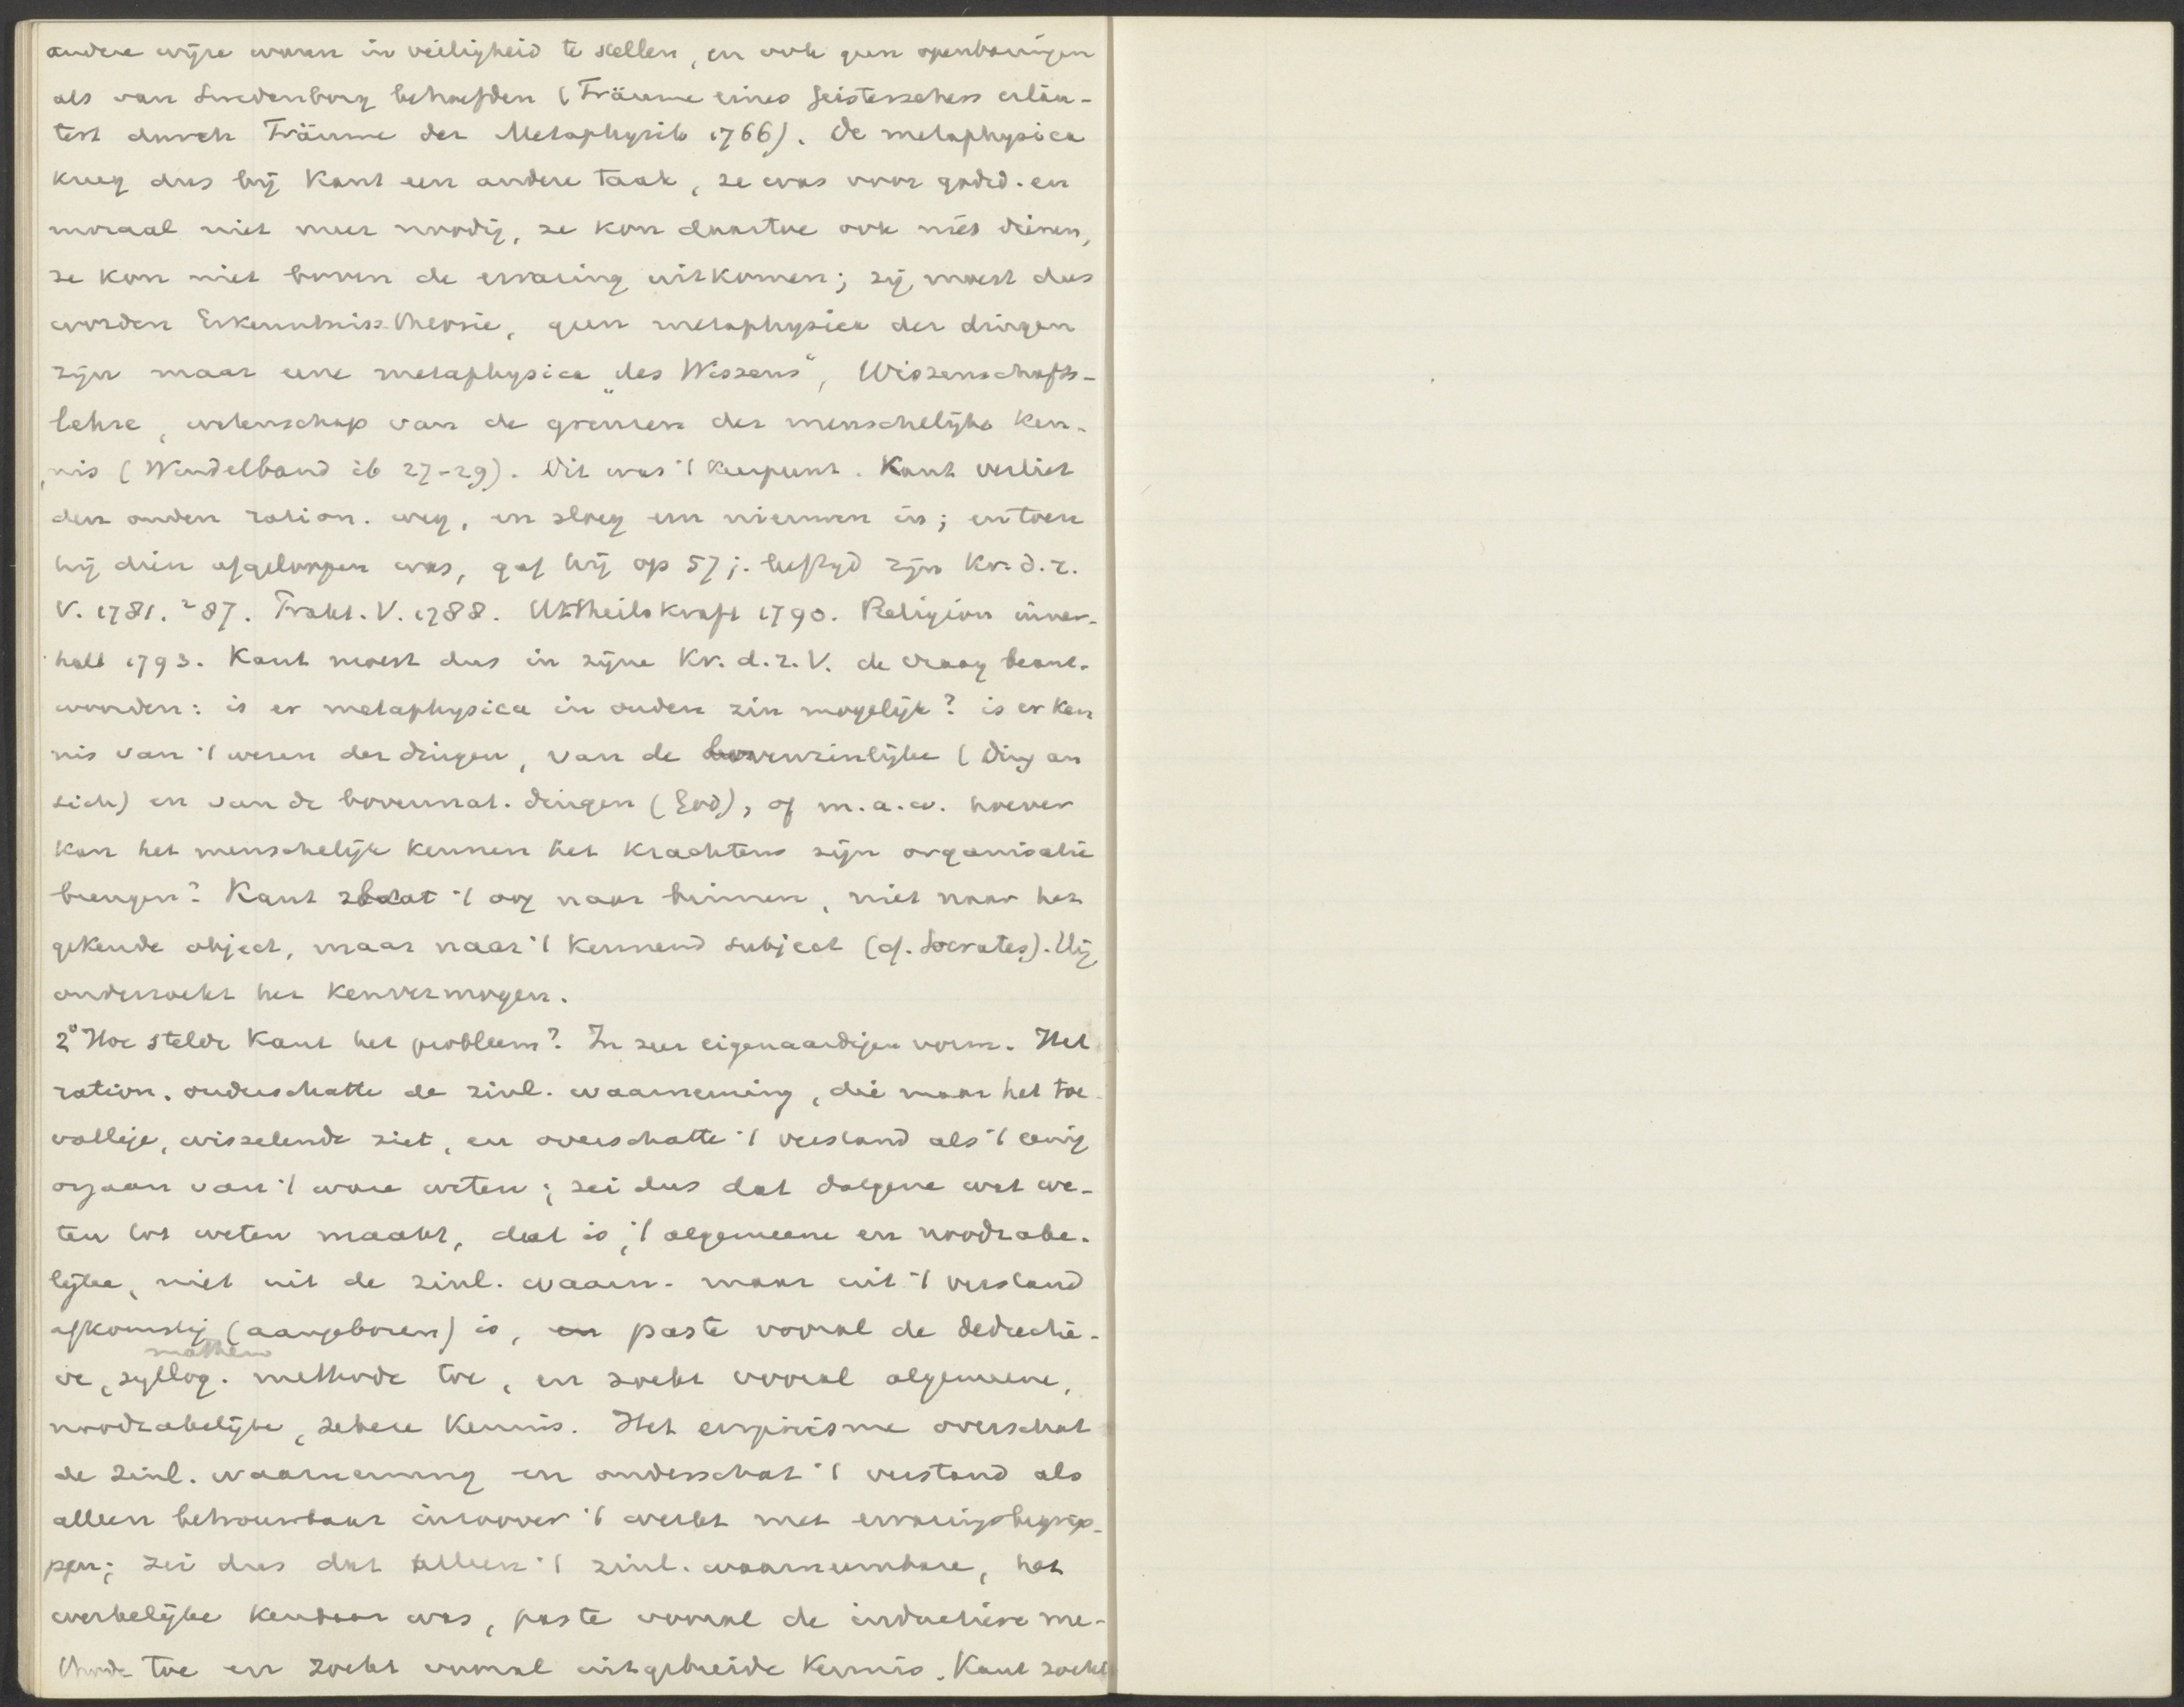 andere wijze waren in veiligheid te stellen, en ook geen openbaringen
als van Swedenborg behoefden (Träume eines Geistersehers erläu-
tert durch Träume der Metaphysik 1766). De metaphysica
kreeg dus bij Kant een andere taak, ze was voor godsd. en
moraal niet meer noodig, ze kon daartoe ook niet dienen,
ze kon niet boven de ervaring uitkomen; zij moest dus
worden Erkenntniss-theorie, geen metaphysica der dingen
zijn maar eene metaphysica „des Wissens“, Wissenschafts-
lehre, wetenschap van de grenzen der menschelijke ken-
nis (Windelband ib 27-29). Dit was 't keerpunt. Kant verliet
den ouden ration. weg, en sloeg een nieuwen in; en toen
hij dien afgeloopen was, gaf hij op 57 j. leeftijd zijn Kr. d. r.
V. 1781. ²87. Prakt. V. 1788. Urtheilskraft 1790. Religion inner-
halb 1793. Kant moest dus in zijne Kr. d. r. V. de vraag beant-
woorden: is er metaphysica in ouden zin mogelijk? is er ken
nis van 't wezen der dingen, van de bovenzinlijke (Ding an
sich) en van de bovennat. dingen (God), of m.a.w. hoever
kan het menschelijk kennen het krachtens zijn organisatie
brengen? Kant slaat 't oog naar binnen, niet naar het
gekende object, maar naar 't kennend subject (cf. Socrates). Hij
onderzoekt het kenvermogen.
2° Hoe stelde Kant het probleem? In zeer eigenaardigen vorm. Het
ration. onderschatte de zinl. waarneming, die maar het toe
vallige, wisselende ziet, en overschatte 't verstand als 't eenig
orgaan van 't ware weten; zei dus dat datgene wat we-
ten tot weten maakt, dat is, 't algemeene en noodzake-
lijke, niet uit de zinl. waarn. maar uit 't verstand
afkomstig (aangeboren) is, en paste vooral de deductie-
ve, syllog. mathem methode toe, en zoekt vooral algemeene,
noodzakelijke, zekere kennis. Het empirisme overschat
de zinl. waarneming en onderschat 't verstand als
alleen betrouwbaar inzoover 't werkt met ervaringsbegrip-
pen; zei dus dat alleen 't zinl. waarneembare, het
werkelijke kenbaar was, paste vooral de inductieve me-
thode toe en zoekt vooral uitgebreide kennis. Kant zoekt